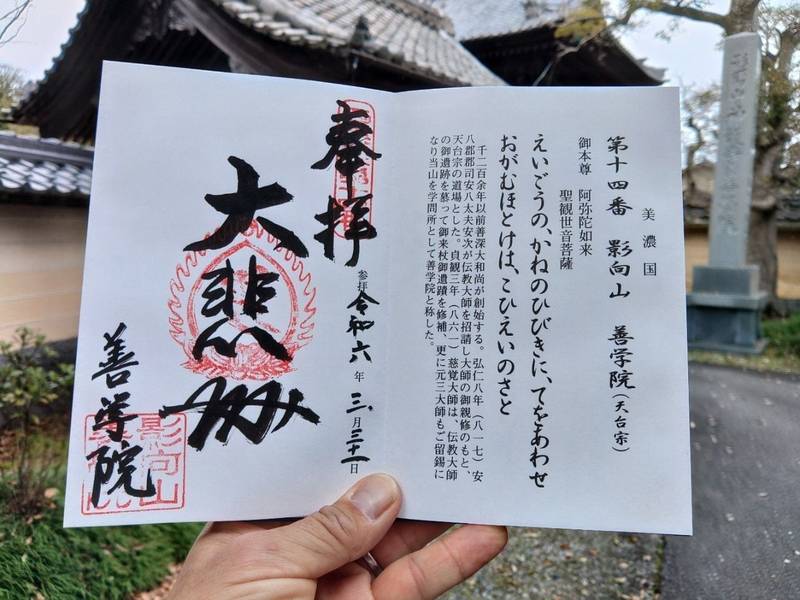 美濃国
第十四番 影向山 善学院(天台宗)
御本尊 阿弥陀如来
聖観世音菩薩
えいごうの、かねのひびきに、てをあわせ
おがむほとけは、こひえいのさと
千二百余年以前善深大和尚が創始する。弘仁八年(八一七)安
八郡郡司安八太夫安次が伝教大師を招請し大師の御親修のもと、
天台宗の道場とした。貞観三年(八六一)慈覚大師は、伝教大師
の御遺跡を慕って御来杖御遺蹟を修補、更に元三大師もご留錫に
なり当山を学問所として善学院と称した。
奉拝
参拝 令和六年三月三十一日
大悲
善学院
影向山